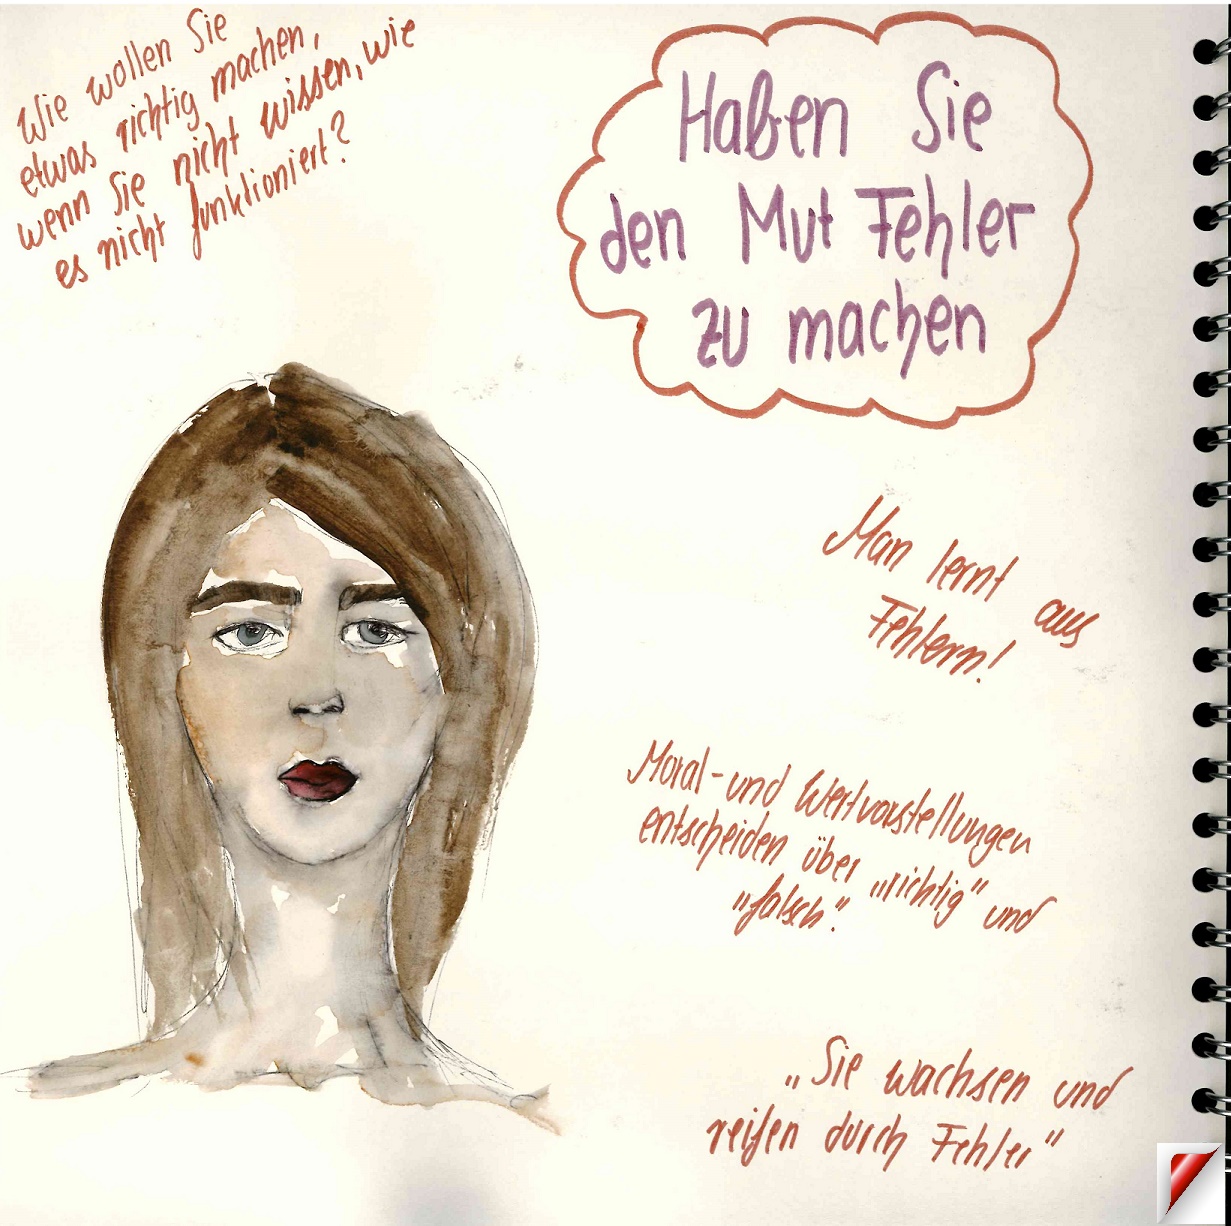 Wie wollen Sie
etwas richtig machen,
wenn Sie nicht wissen, wie
es nicht funktioniert?
Haben Sie
den Mut Fehler
zu machen
Man lernt aus
Fehlern!
Moral- und Wertvorstellungen
entscheiden über „richtig" und
"falsch".
„Sie wachsen und
reifen durch Fehler"